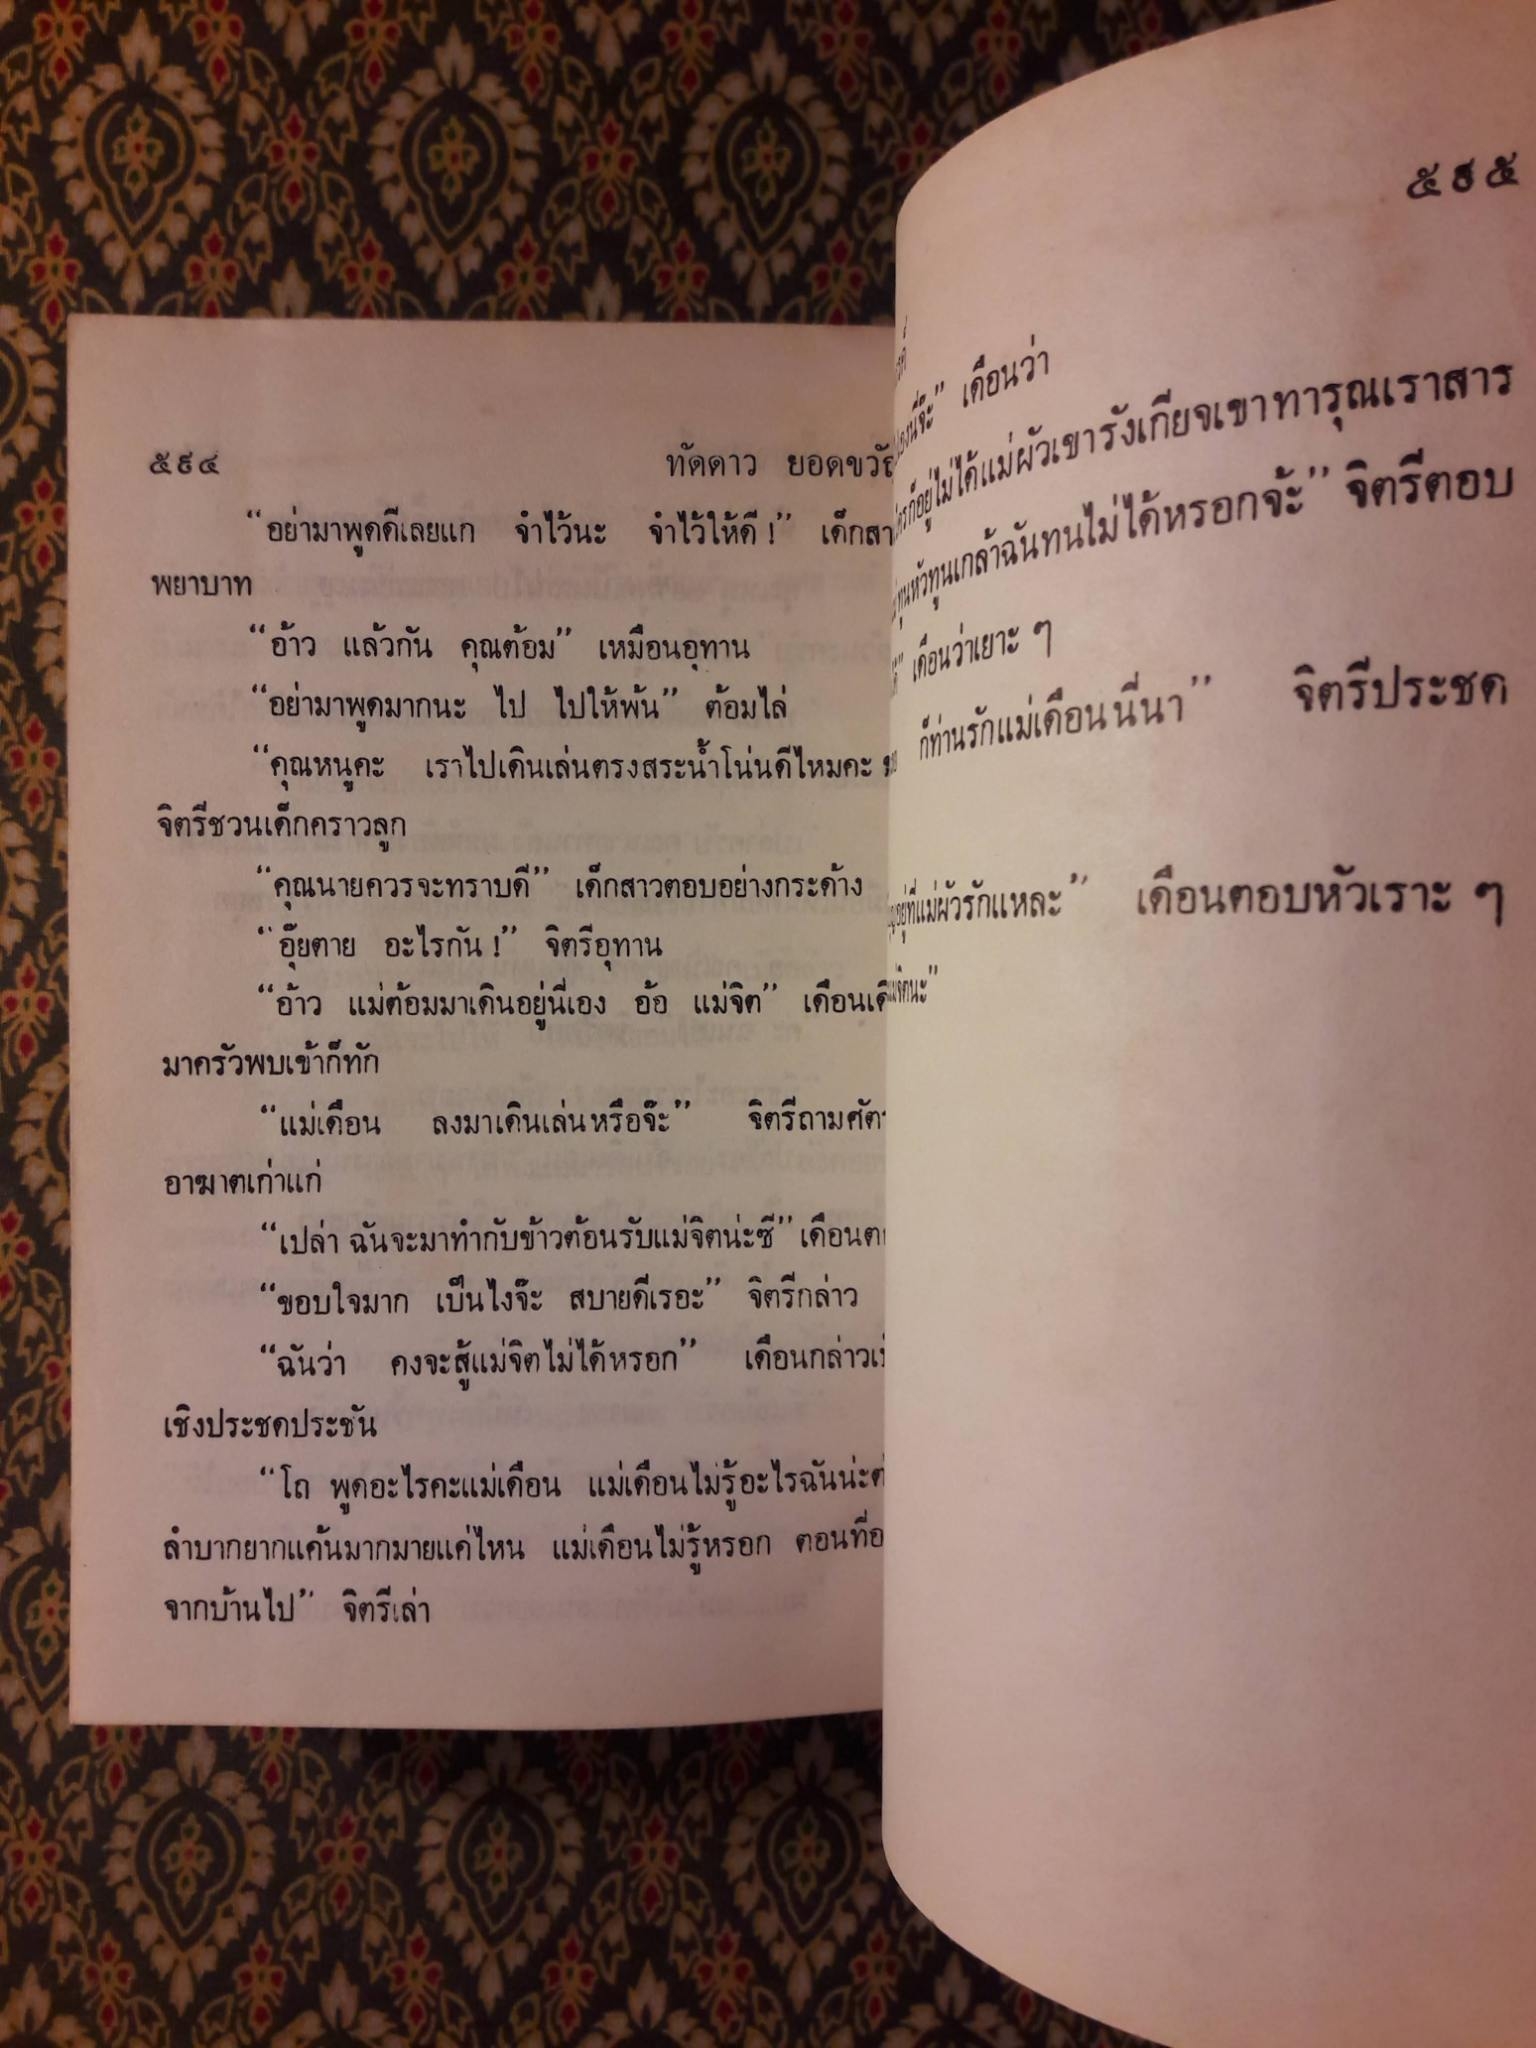 ๕๙๔ ทัดดาว ยอดขวัญ
“อย่ามาพูดดีเลยแก จำไว้นะ จำไว้ให้ดี !”
พยาบาท
“อ้าว แล้วกัน คุณต้อม” เหมือนอุทาน
“อย่ามาพูดมากนะ ไป ไปให้พ้น” ต้อมไล่
“คุณหนูคะ เราไปเดินเล่นตรงสระน้ำโน่นดีไหมคะ
จิตรีชวนเด็กคราวลูก
“คุณนายควรจะทราบดี” เด็กสาวตอบอย่างกระด้าง
“อุ๊ยตาย อะไรกัน !” จิตรีอุทาน
“อ้าว แม่ต้อมมาเดินอยู่นี่เอง อ้อ แม่จิต”
มาครัวพบเข้าก็ทัก
“แม่เดือน ลงมาเดินเล่นหรือจ๊ะ” จิตรีถาม
อาฆาตเก่าแก่
“เปล่า ฉันจะมาทำกับข้าวต้อนรับแม่จิตน่ะซี”
“ขอบใจมาก เป็นไงจ๊ะ สบายดีเรอะ” จิตรีกล่าว
“ฉันว่า คงจะสู้แม่จิตไม่ได้หรอก” เดือนกล่าว
เชิงประชดประชัน
“โถ พูดอะไรคะแม่เดือน แม่เดือนไม่รู้อะไรฉันน่ะ
ลำบากยากแค้นมากมายแค่ไหน แม่เดือนไม่รู้หรอก ตอนที่
จากบ้านไป” จิตรีเล่า
๕๙๕
เดือนว่า
ก็อยู่ไม่ได้แม่ผัวเขารังเกียจเขาทารุณเราสาร
ทูนหัวทูนเกล้าฉันทนไม่ได้หรอกจ้ะ” จิตรีตอบ
เดือนว่าเยาะ ๆ
ก็ท่านรักแม่เดือนนี่นา” จิตรีประชด
อยู่ที่แม่ผัวรักแหละ” เดือนตอบหัวเราะ ๆ